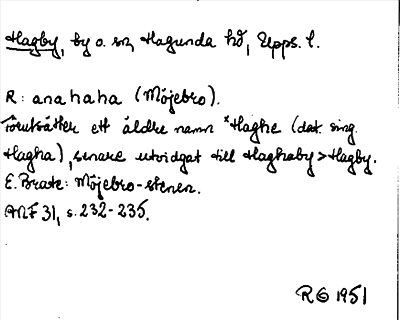 Hagby, by o. sn, Hagunda hd, Upps. l.
R: anahaha (Möjebro).
Förutsätter ett äldre namn *Haghe (dat. sing.
Hagha), senare utvidgat till Haghaby > Hagby.
E. Brate: Möjebro-stenen.
ANF 31, s. 232-235.
RG 1951